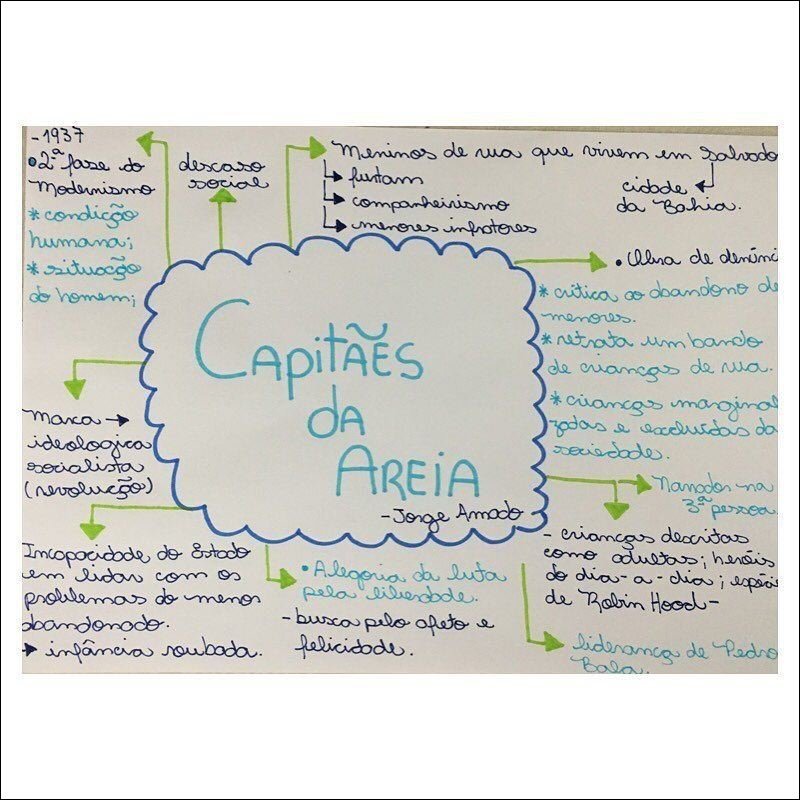 - 1937
• 2ª fase do
Modernismo
* condição
humana;
* situação
do homem;
descaso
social
Meninos de rua que vivem em Salvado
furtam
companheirismo
menores infratores
cidade
da Bahia.
• Obra de denúnci
* crítica ao abandono de
menores.
* retrata um bando
de crianças de rua.
* crianças marginal
zadas e excluídas da
sociedade.
CAPITÃES
DA
AREIA
- Jorge Amado
Marca →
ideologica
socialista
(revolução)
Narrador na
3ª pessoa.
- crianças descritas
como adultas; heróis
do dia-a-dia; espéci
de Robin Hood -
Incapacidade do Estado
em lidar com os
problemas do menor
abandonado.
→ infância roubada.
• Alegoria da luta
pela liberdade.
- busca pelo afeto e
felicidade.
liderança de Pedro
Bala.